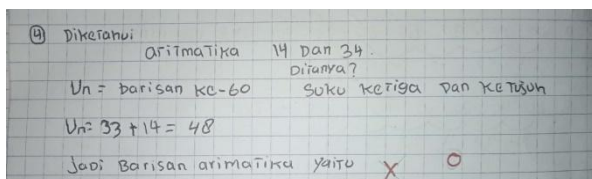 ④ Diketahui
aritmatika 14 Dan 34.
Ditanya?
Un = barisan ke-60 Suku ketiga Dan Ketujuh
Un= 33 + 14 = 48
Jadi Barisan arimatika yaitu X O